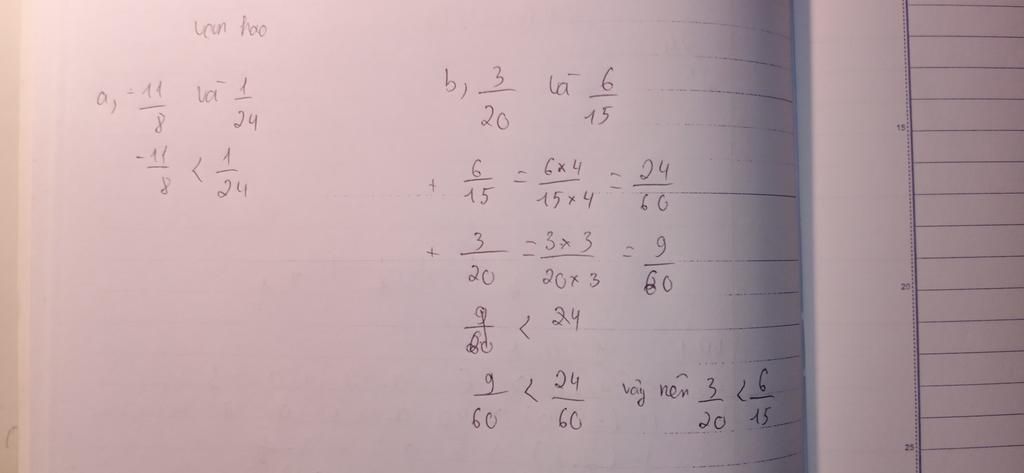 a, -11/8 và 1/24
-11/8 < 1/24
b, 3/20 và 6/15
+ 6/15 = 6×4/15×4 = 24/60
+ 3/20 = 3×3/20×3 = 9/60
9/60 < 24
9/60 < 24/60 vậy nên 3/20 < 6/15
15
20
25